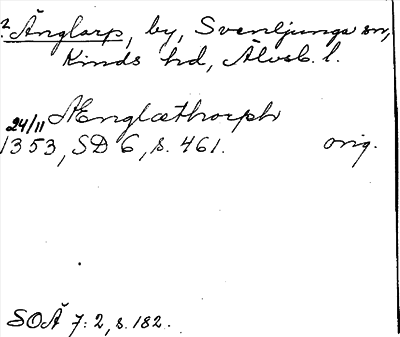 ? Änglarp, by, Svenljunga sn,
Kinds hd, Älvsb. l.
Ænglæthorph
24/11
1353, SD 6, s. 461. orig.
SOÄ 7:2, s. 182.